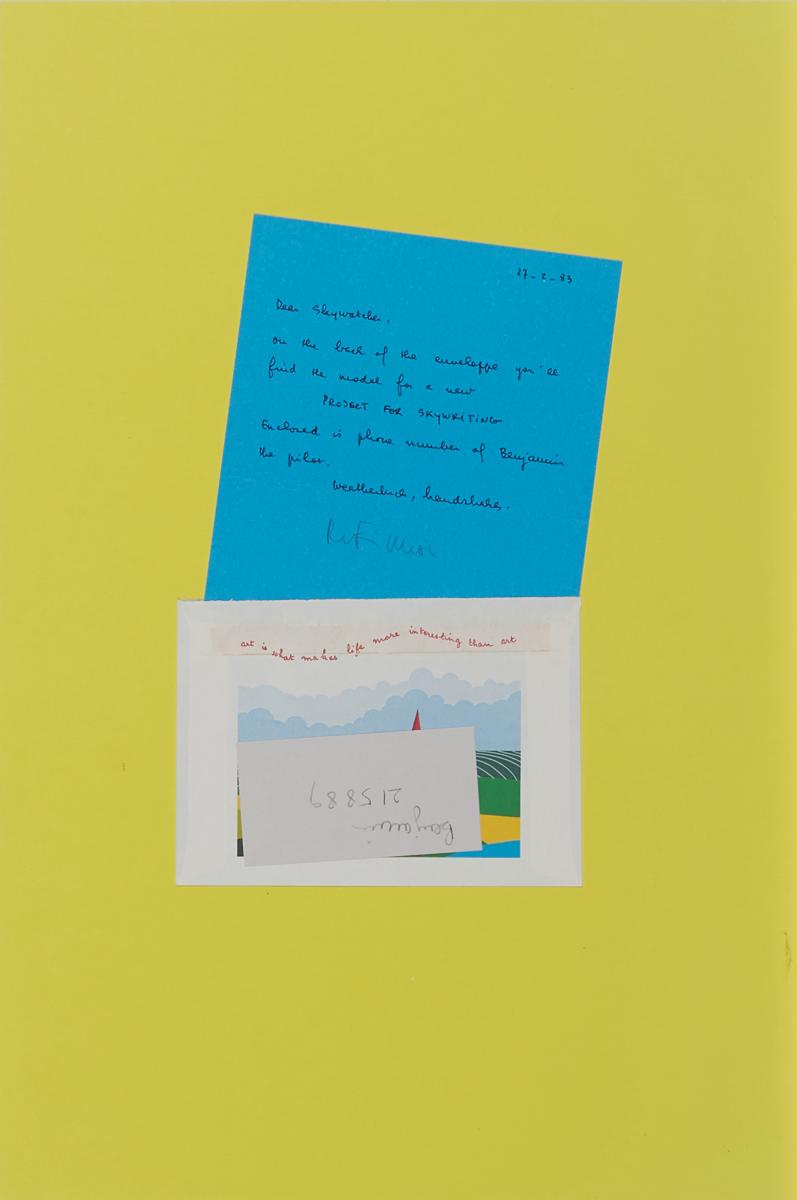 27-2-83
Dear Skywatcher,
on the back of the enveloppe you'll
find the model for a new
PROJECT FOR SKYWRITING
Enclosed is phone number of Benjamin
the pilot.
Weatherluck, handshakes.
R. Filliou
art is what makes life more interesting than art
Benjamin
215889